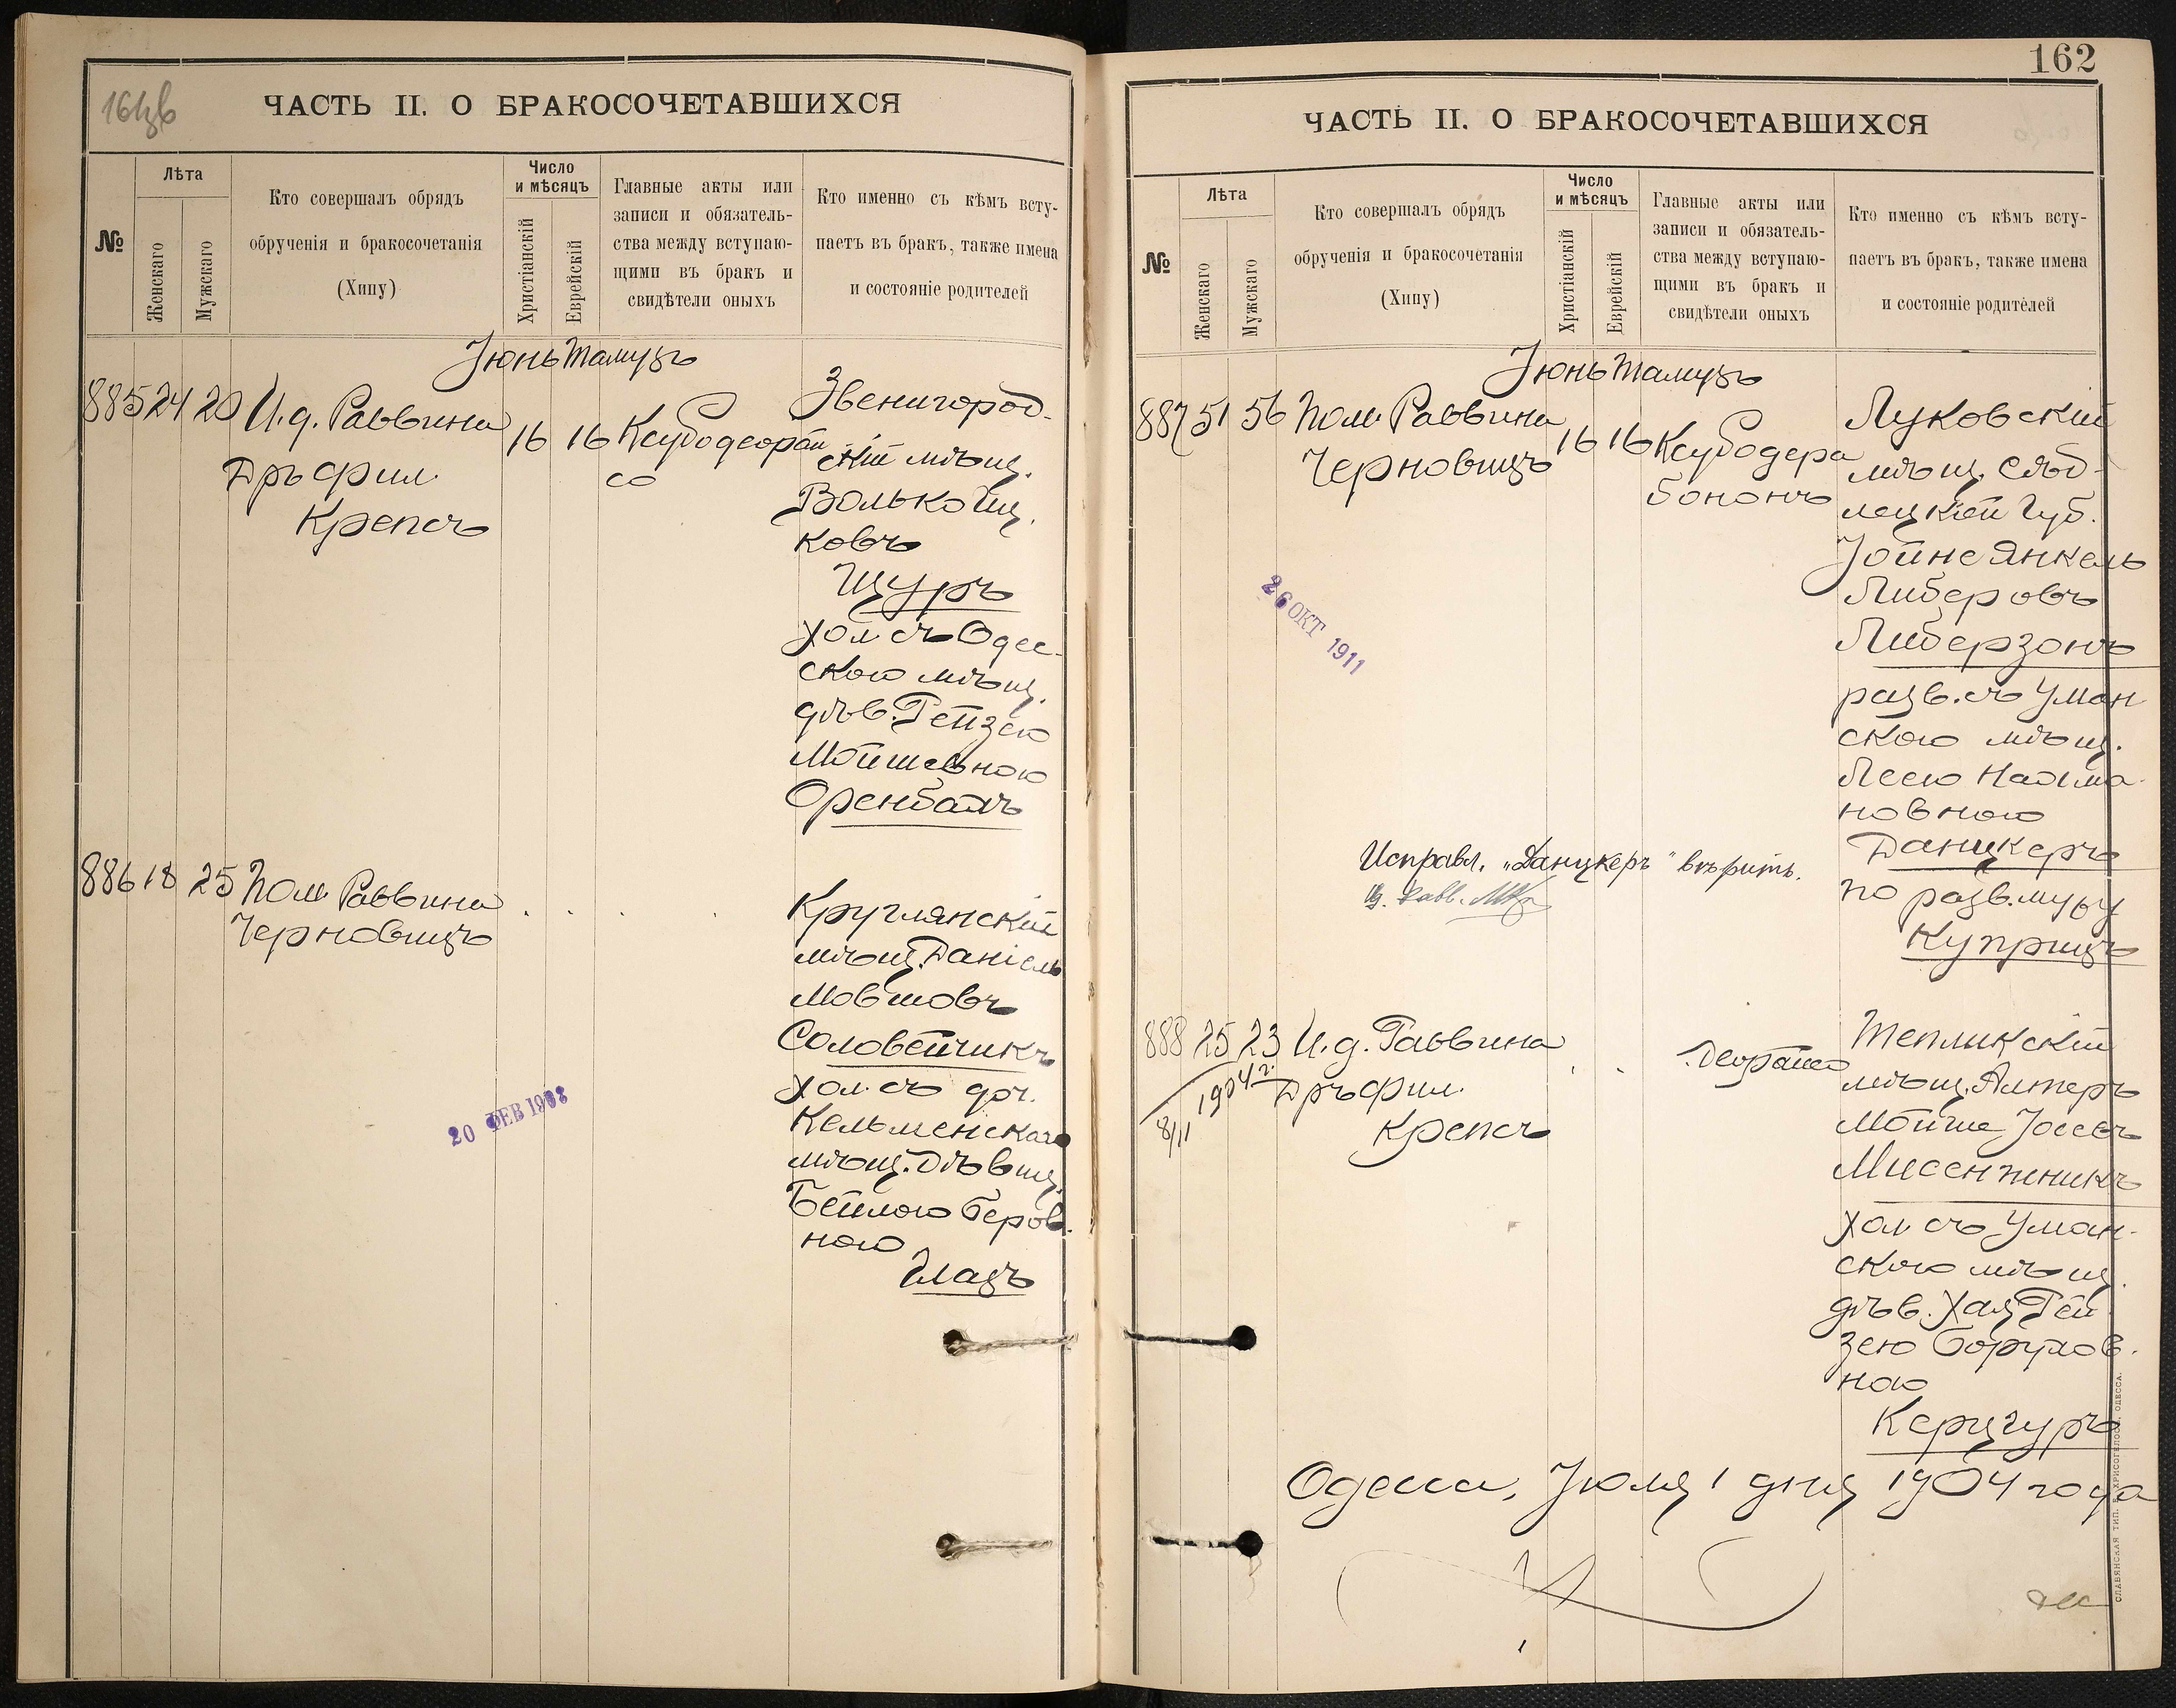 161зв
ЧАСТЬ II. О БРАКОСОЧЕТАВШИХСЯ
№
Лѣта
Женскаго
Мужскаго
Кто совершалъ обрядъ
обрученія и бракосочетанія
(Хипу)
Число
и мѣсяцъ
Христіанскій
Еврейскій
Главные акты или
записи и обязатель-
ства между вступаю-
щими въ бракъ и
свидѣтели оныхъ
Кто именно съ кѣмъ всту-
паетъ въ бракъ, также имена
и состояніе родителей
Іюнь Тамузъ
885 24 20 И.д. Раввина
Дръ фил.
Крепсъ
16 16
Звенигород-
скій мѣщ.
Волько Иц.
ковъ
Щуръ
хол. съ Одес-
скою мѣщ.
дѣв. Рейзею
Мойшевною
Оренбахъ
886 18 25 Пом. Раввина
Черновицъ
Круглянскій
мѣщ. Даніель
Мовшовъ
Соловейчикъ
хол. съ доч.
Кельменскаго
мѣщ. дѣвиц.
Бейлою Беров-
ною
Глазъ
20 ФЕВ 1908
162
ЧАСТЬ II. О БРАКОСОЧЕТАВШИХСЯ
№
Лѣта
Женскаго
Мужскаго
Кто совершалъ обрядъ
обрученія и бракосочетанія
(Хипу)
Число
и мѣсяцъ
Христіанскій
Еврейскій
Главные акты или
записи и обязатель-
ства между вступаю-
щими въ бракъ и
свидѣтели оныхъ
Кто именно съ кѣмъ всту-
паетъ въ бракъ, также имена
и состояніе родителей
Іюнь Тамузъ
887 51 56 Пом. Раввина
Черновицъ
16 16
Луковскій
мѣщ. Сѣд-
лецкой Губ.
Іойне Янкель
Либеровъ
Либерзонъ
разв. съ Уман
скою мѣщ.
Леею Нахма-
новною
Данцкеръ
по разв. мужу
Куприцъ
26 ОКТ 1911
Исправл. „Данцкеръ" вѣрить.
888 25 23 И.д. Раввина
Дръ фил.
Крепсъ
8/11 1904 г.
Тепликскій
мѣщ. Алтеръ
Мойше Іосевъ
Мисенжникъ
хол. съ Уман-
скою мѣщ.
дѣв. Хая Рей
зею Борухов-
ною
Керцгуръ
Одесса, Іюля 1 дня 1904 года
СЛАВЯНСКАЯ ТИП. Е. ХРИСОГЕЛОСЪ, ОДЕССА.